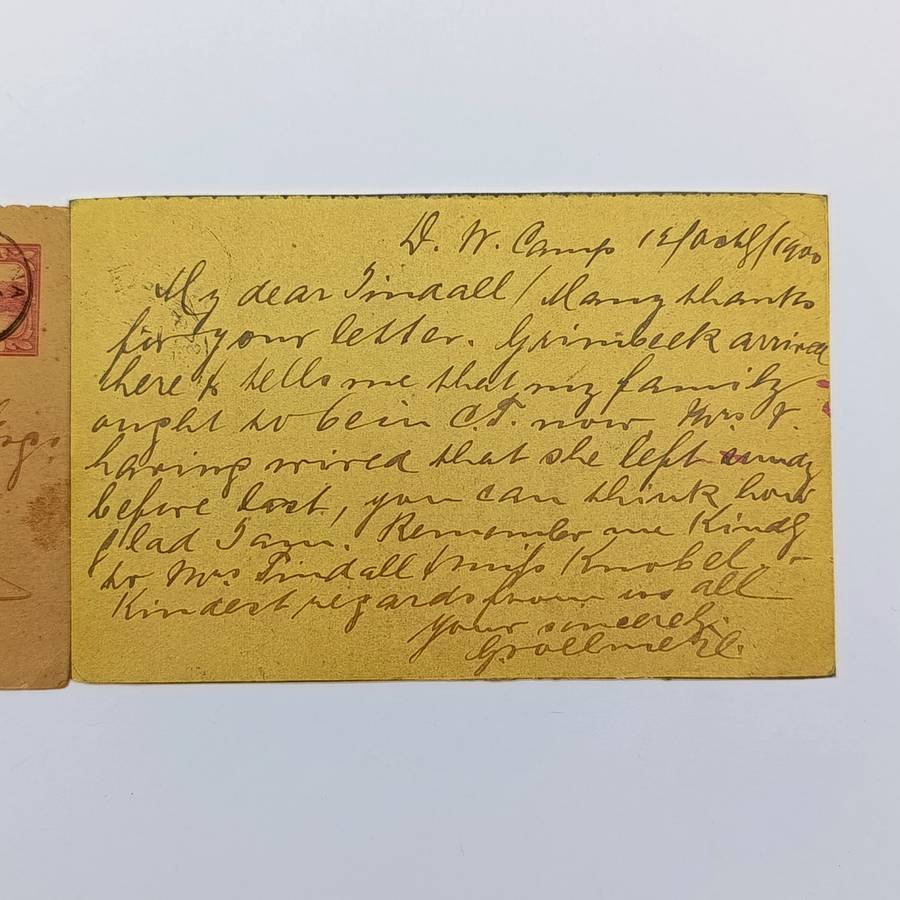 D. W. Camp 12/Oct/1900
My dear Tindall / Many thanks
for your letter. Grimbeek arrived
here & tells me that my family
ought to be in C.T. now Mrs
having wired that she left
before last, you can think how
glad I am. Remember me Kindly
to Mrs Tindall & Miss Knobel
Kindest regards from us all
Your sincerely